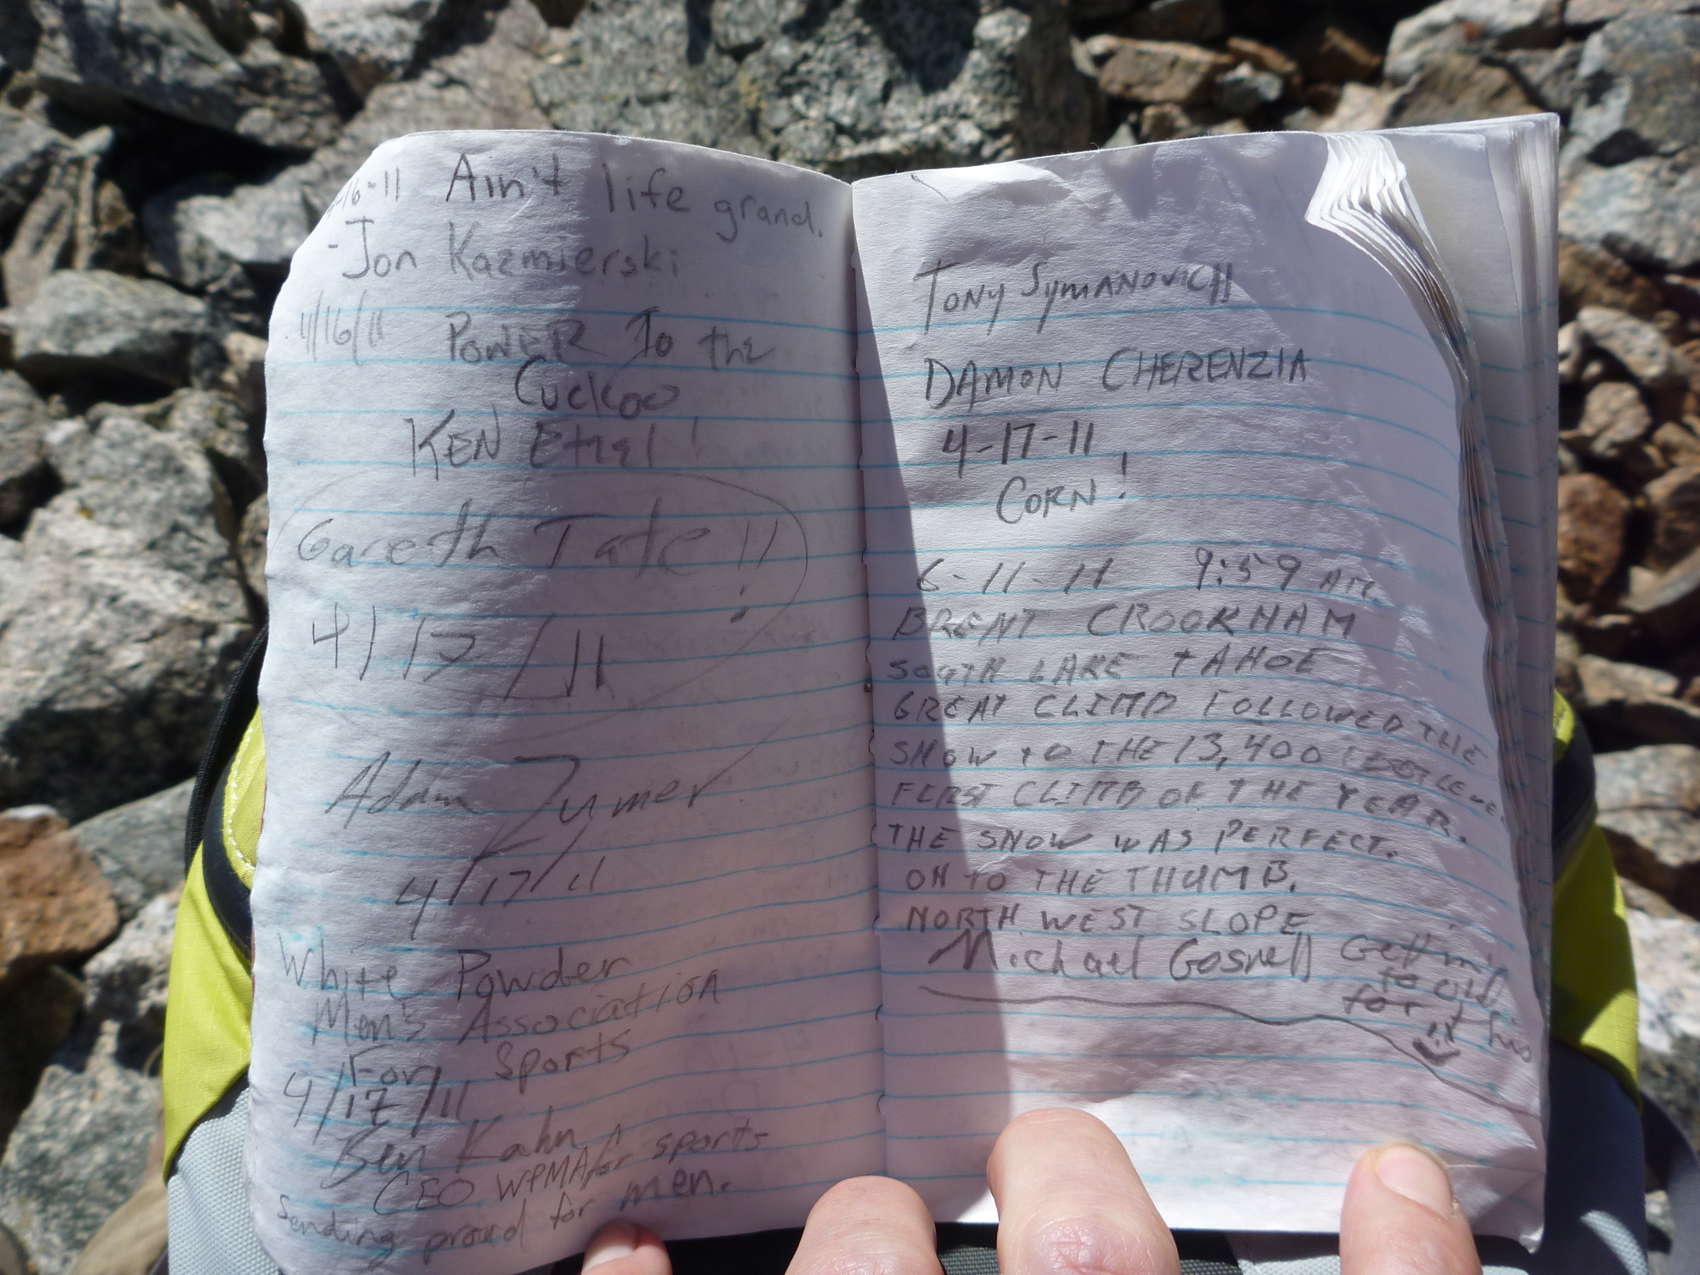 4-16-11 Ain't life grand.
-Jon Kazmierski
4/16/11 POWER To the
Cuckoo
KEN Etzel!
Gareth Tate!!!
4/17/11
Adam Zumer
4/17/11
White Powder
Men's Association
For Sports
4/17/11
Ben Kahn
CEO WPMA for sports
Sending proud for men.
TONY SYMANOVICH
DAMON CHERENZIA
4-17-11
CORN!
6-11-11 9:59 AM
BRENT CROOKHAM
SOUTH LAKE TAHOE
GREAT CLIMB FOLLOWED THE
SNOW TO THE 13,400 LEVEL.
FIRST CLIMB OF THE YEAR.
THE SNOW WAS PERFECT.
ON TO THE THUMB.
NORTH WEST SLOPE
Michael Gosnell Getting
to old
for it